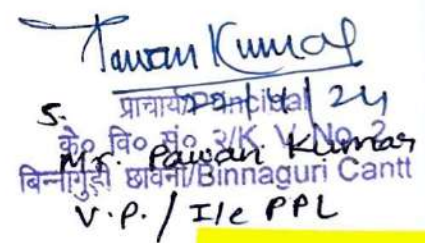 Pawan Kumar
22/4/24
प्राचार्य/Principal
5.
के० वि० सं० २/K. V. No. 2
Mr. Pawan Kumar
बिन्नागुड़ी छावनी/Binnaguri Cantt
V.P. / I/c PPL